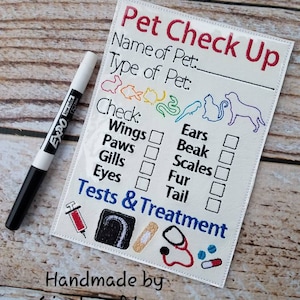 Pet Check Up
Name of Pet:
Type of Pet:
Check:
Wings
Paws
Gills
Eyes
Ears
Beak
Scales
Fur
Tail
Tests & Treatment
EXPO
Handmade by